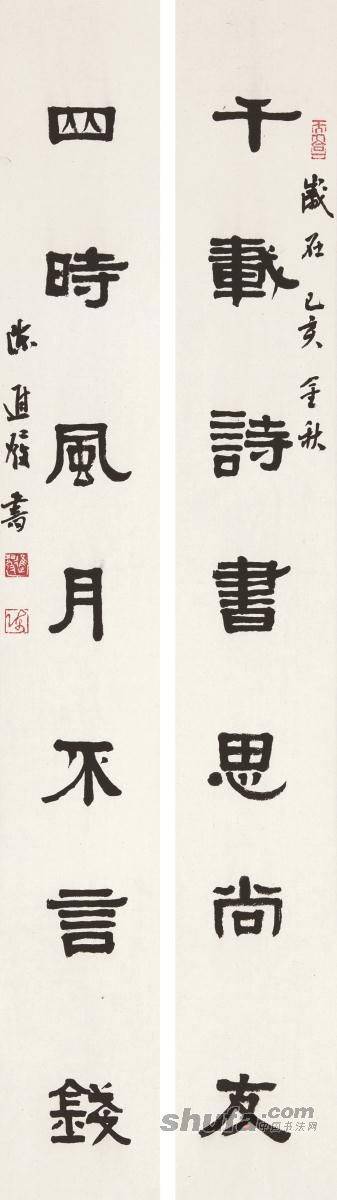 千載詩書思尚友
歲在己亥金秋
四時風月不言錢
陈進 書
shufa.com
中国书法网